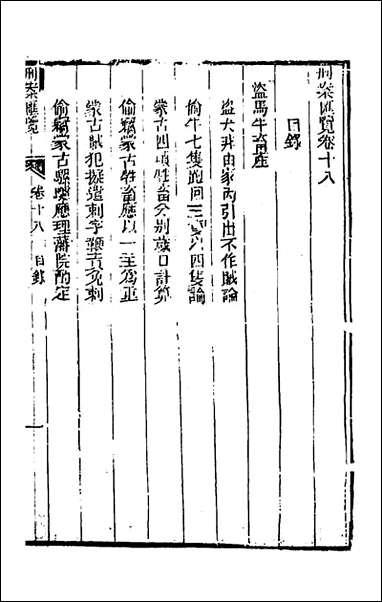 刑案匯覽卷十八
目錄
盜馬牛畜產
盜犬非由家內引出不作賊論
偷牛七隻跑回三隻以四隻論
蒙古四項牲畜分別歲口計算
偷竊蒙古牲畜應以一主為重
蒙古賊犯擬遣刺字鞭責免刺
偷竊蒙古騾應理藩院酌定
刑案匯覽
卷十八 目錄
一